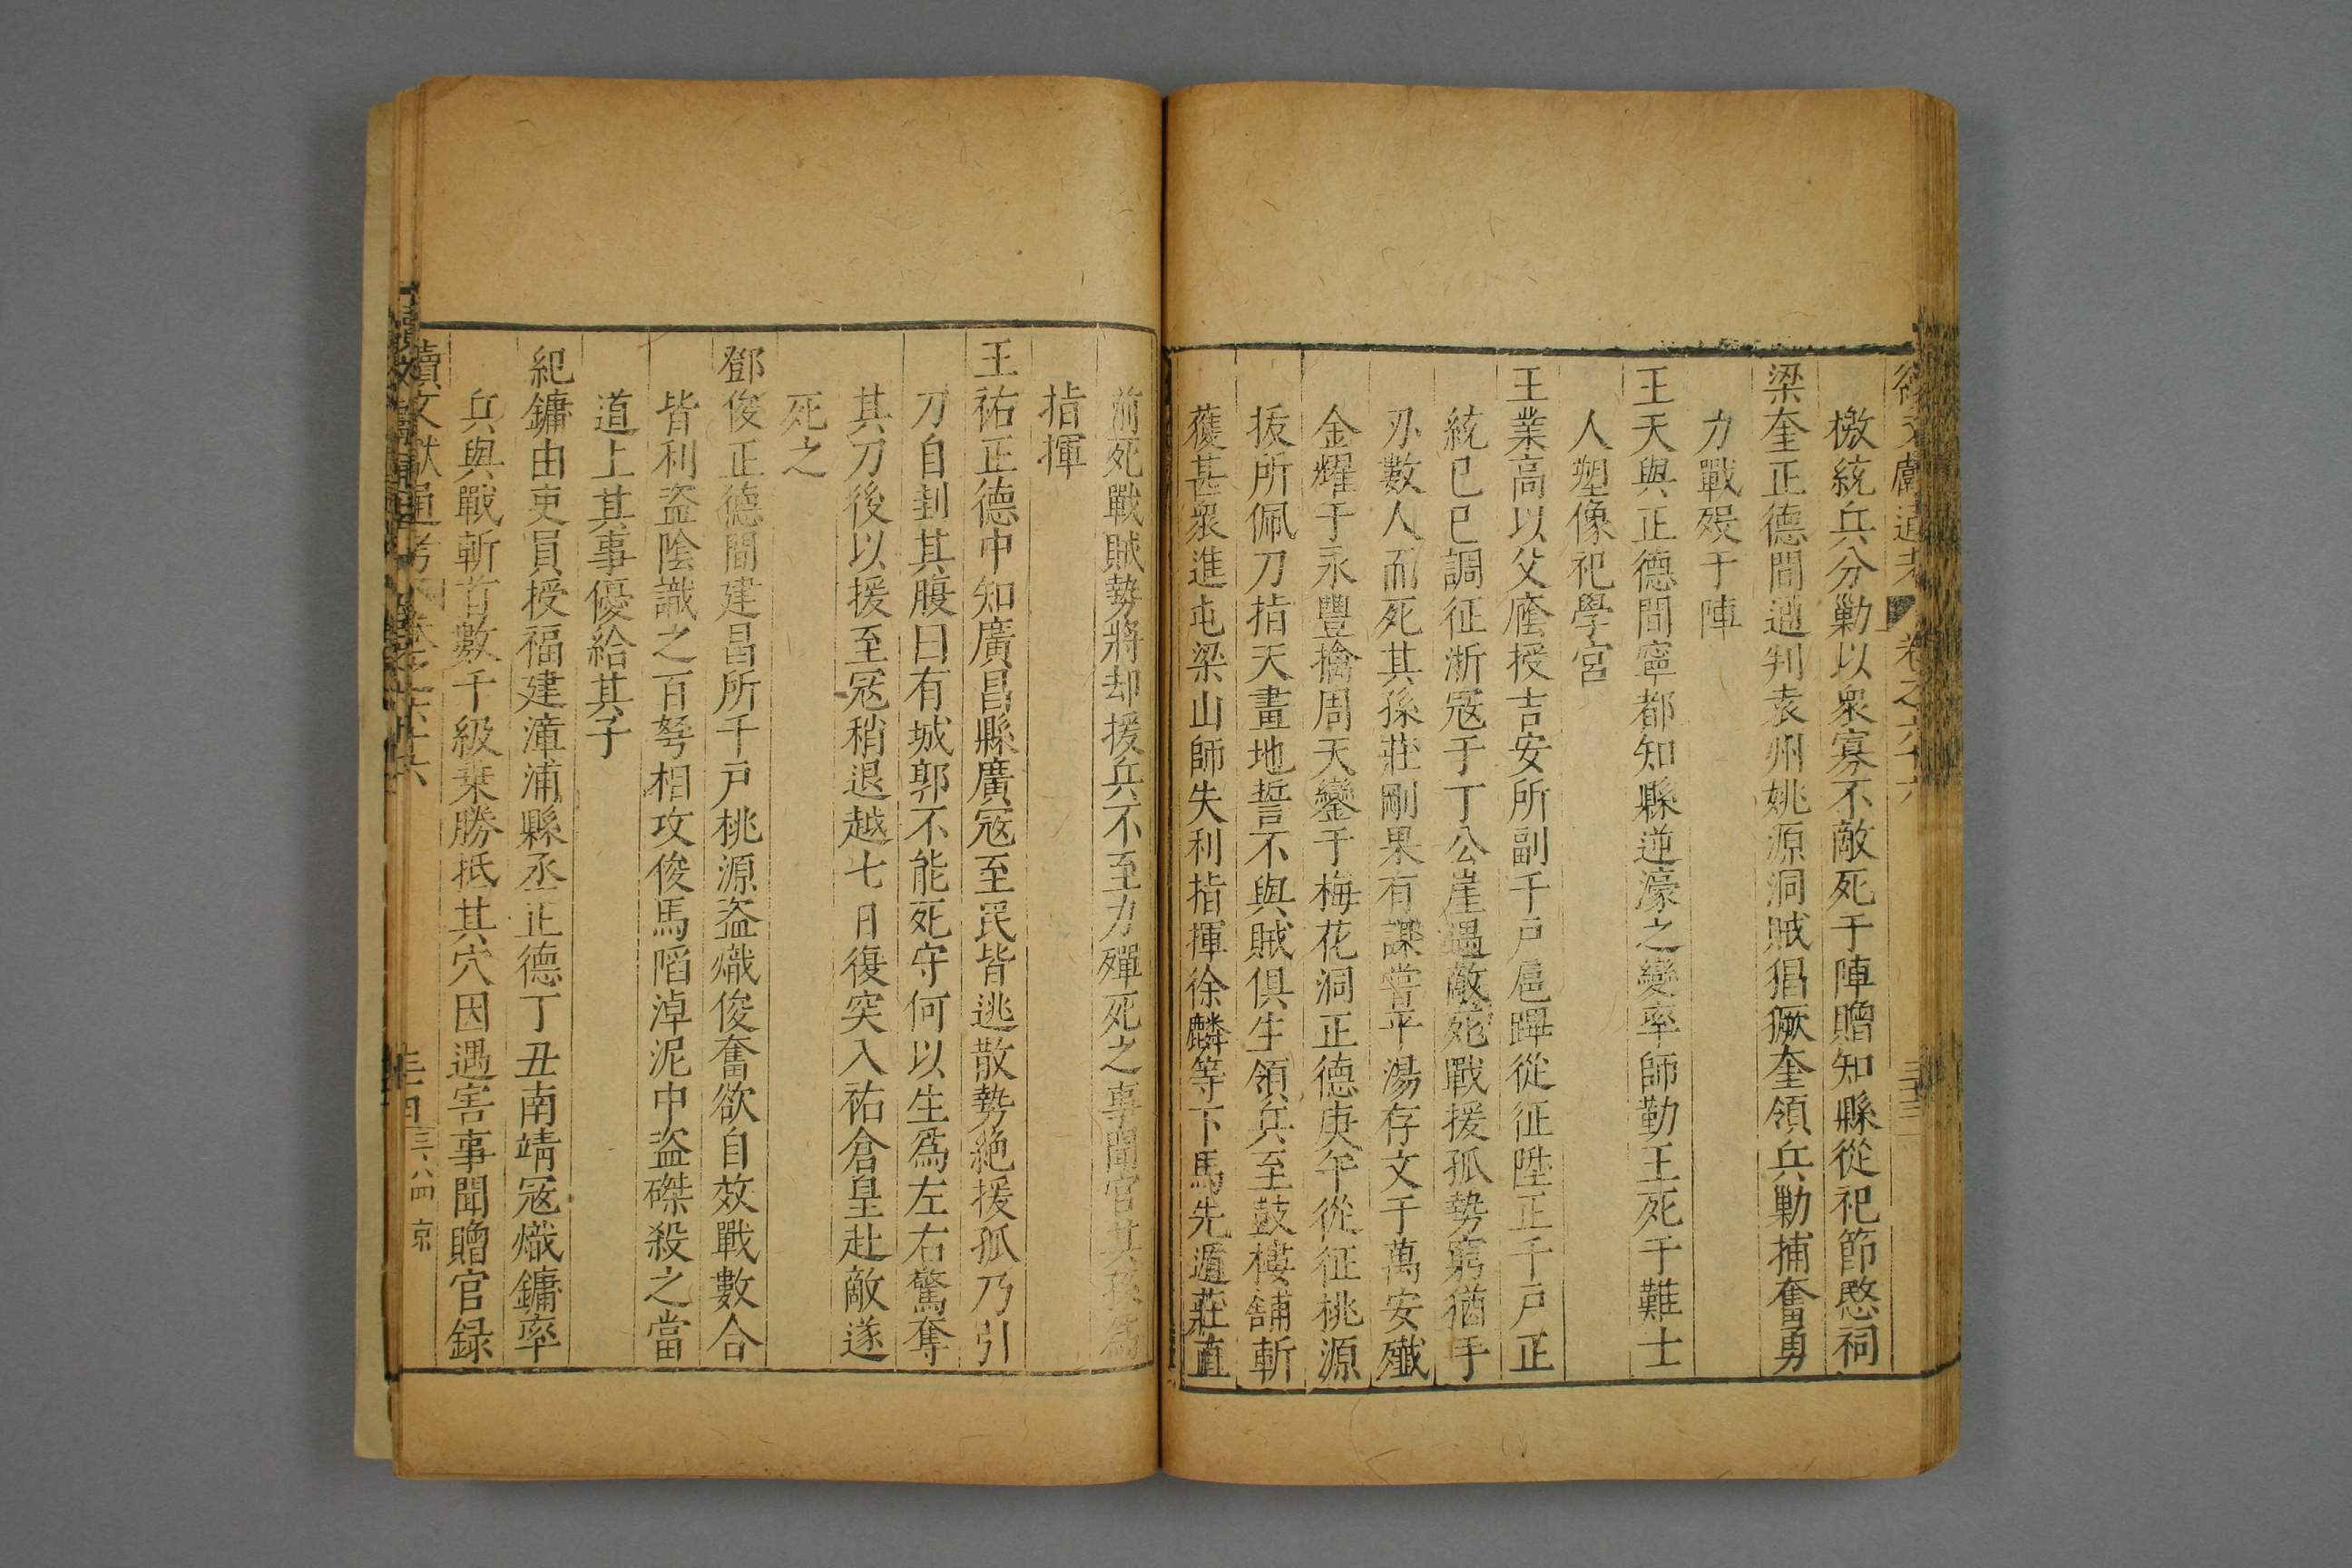 續文獻通考 卷之六十六 三十三
檄統兵分勦以衆寡不敵死于陣贈知縣從祀節愍祠
梁奎正德間通判袁州姚源洞賊猖獗奎領兵勦捕奮勇
力戰殁于陣
王天與正德間寧都知縣逆濠之變率師勤王死于難士
人塑像祀學宮
王業高以父廕授吉安所副千戶扈蹕從征陞正千戶正
統己巳調征浙寇于丁公崖遇敵死戰援孤勢窮猶手
刃數人而死其孫莊剛果有謀嘗平湯存文于萬安殲
金耀于永豐擒周天鑾于梅花洞正德庚午從征桃源
拔所佩刀指天畫地誓不與賊俱生領兵至鼓樓舖斬
獲甚衆進屯梁山師失利指揮徐麟等下馬先遁莊直
前死戰賊勢將却援兵不至力殫死之事聞官其孫爲
指揮
王祐正德中知廣昌縣廣寇至民皆逃散勢絶援孤乃引
刀自刲其腹曰有城郭不能死守何以生爲左右驚奪
其刀後以援至寇稍退越七日復突入祐倉皇赴敵遂
死之
鄧俊正德間建昌所千戶桃源盜熾俊奮欲自效戰數合
皆利盜陰識之百弩相攻俊馬陷淖泥中盜磔殺之當
道上其事優給其子
紀鏞由吏員授福建漳浦縣丞正德丁丑南靖寇熾鏞率
兵與戰斬首數千級乗勝抵其穴因遇害事聞贈官録
續文獻通考 卷之六十六 三十四 三八四 京